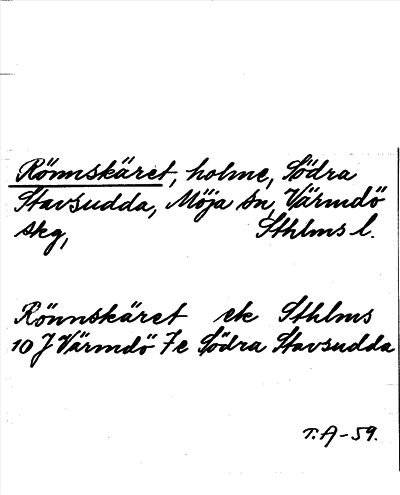 Rönnskäret, holme, Södra
Stavsudda, Möja sn, Värmdö
skg, Sthlms l.
Rönnskäret ek Sthlms
10 J Värmdö 7e Södra Stavsudda
T.A-59.